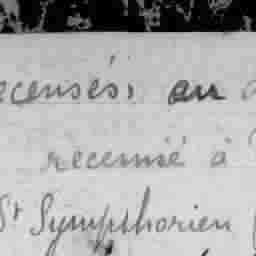 recensés, au
recensé à
St Symphorien